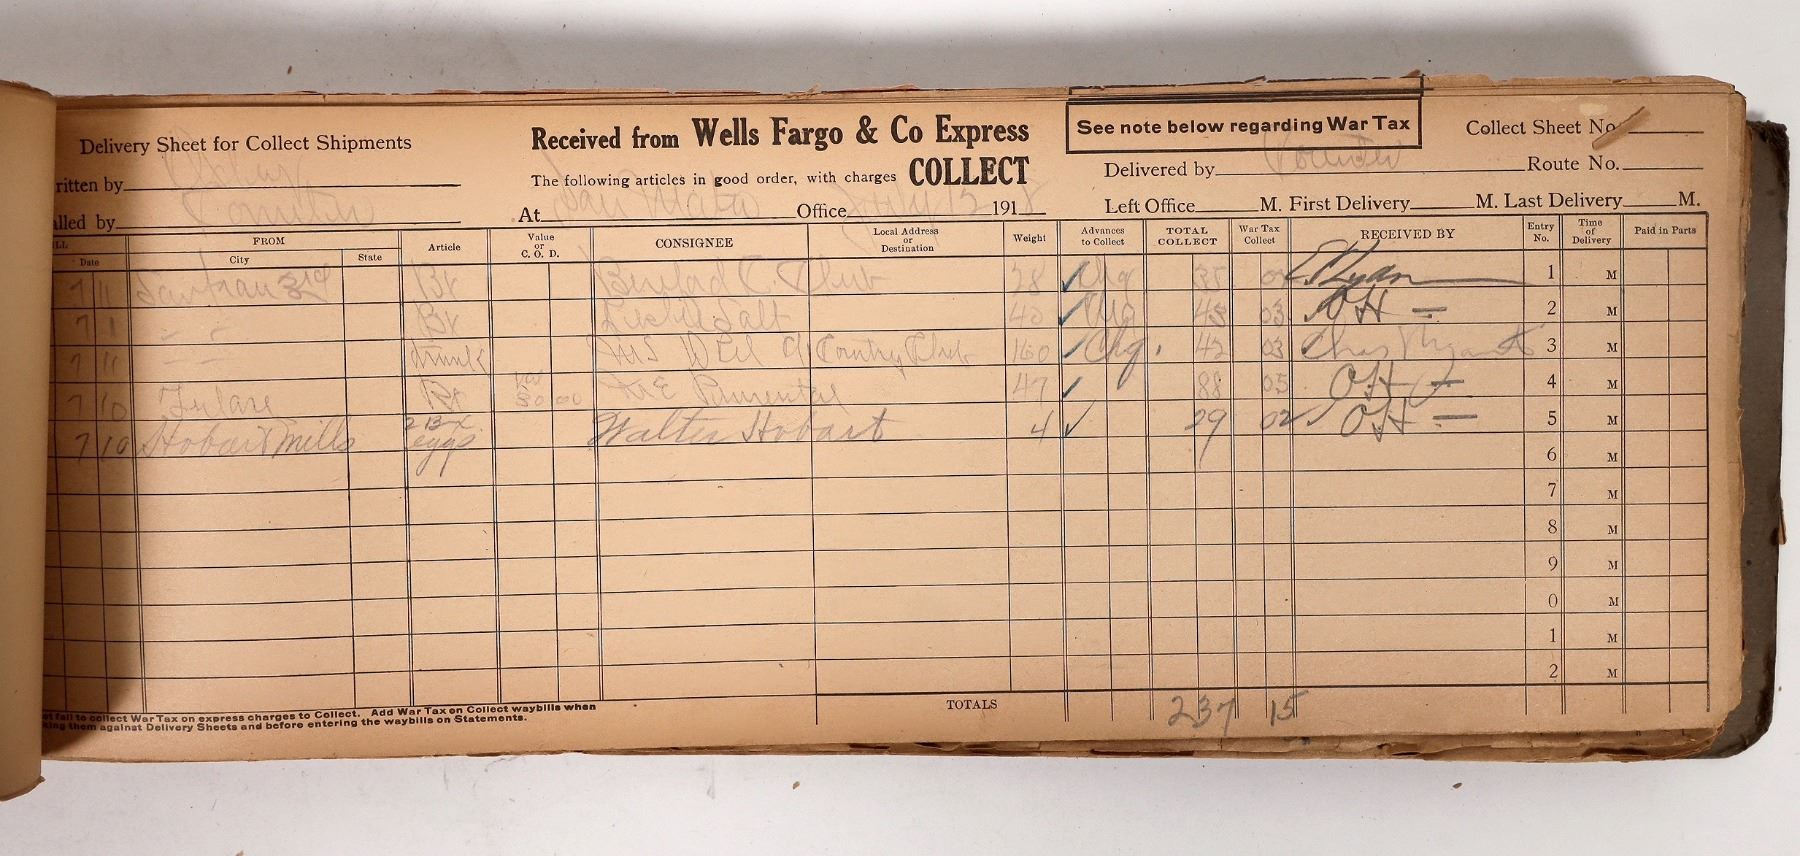 Delivery Sheet for Collect Shipments
Received from Wells Fargo & Co Express
COLLECT
The following articles in good order, with charges
See note below regarding War Tax
Collect Sheet No.
ritten by
Delivered by
Route No.
lled by
At San Mateo Office July 12 1918
Left Office M. First Delivery M. Last Delivery M.
LL
Date
FROM
City
State
Article
Value
or
C. O. D.
CONSIGNEE
Local Address
or
Destination
Weight
Advances
to Collect
TOTAL
COLLECT
War Tax
Collect
RECEIVED BY
Entry
No.
Time
of
Delivery
Paid in Parts
7 11 San Fran 3rd Bx C. Club 28 Chg 35 02 Ryan 1 M
7 11 " " Bx Leslie Salt 40 Chg 43 03 OH — 2 M
7 11 " " trunk Mrs Country Club 160 Chg. 42 03 Chas 3 M
7 10 Tulare Bx Val 50 00 47 88 05 OH — 4 M
7 10 Hobart Mills 2 Bx eggs Walter Hobart 4 29 02 OH — 5 M
6 M
7 M
8 M
9 M
0 M
1 M
2 M
TOTALS 237 15
t fail to collect War Tax on express charges to Collect. Add War Tax on Collect waybills when
king them against Delivery Sheets and before entering the waybills on Statements.